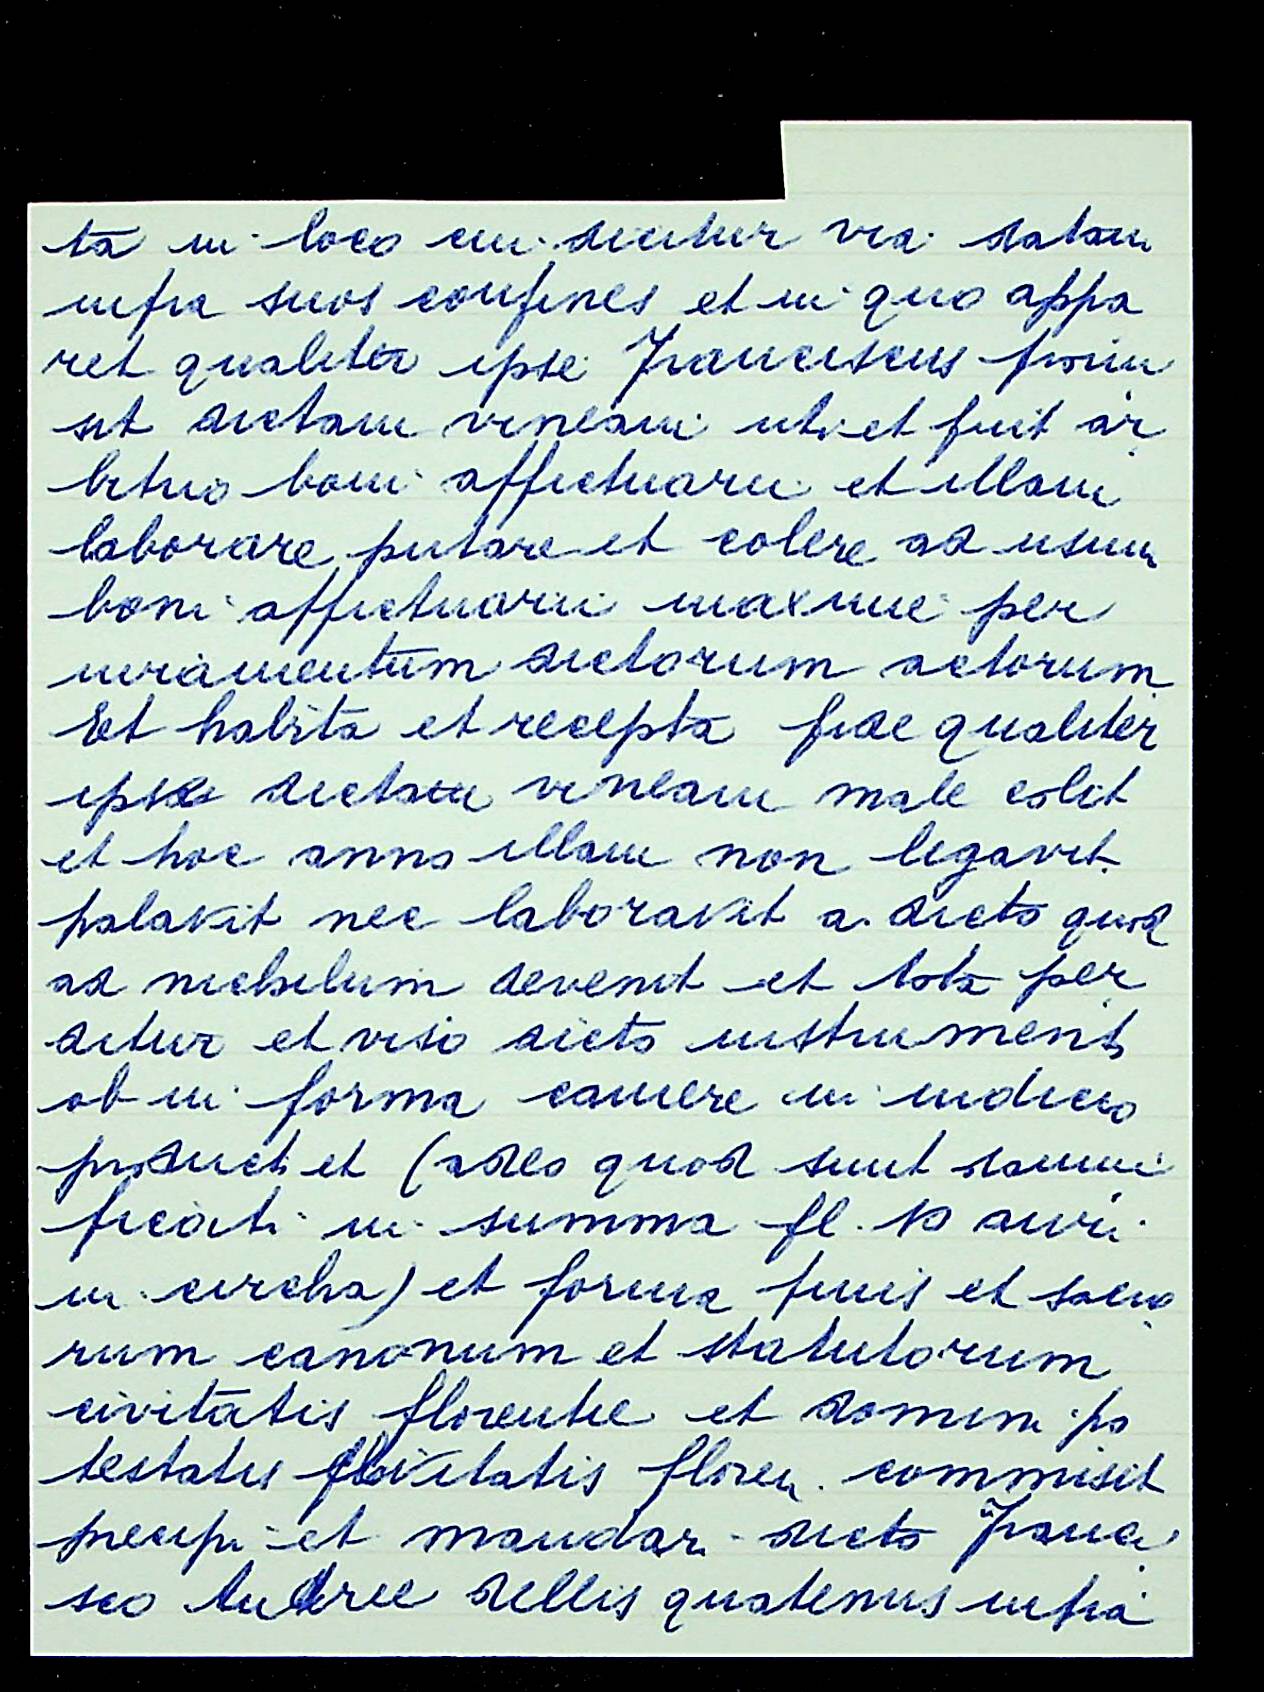 ta in loco cui dicitur via datam
infra suos confines et in quo appa
ret qualiter ipse Franciscus promi
sit dictam vineam uti et fuit ar
bitrio boni affictuarii et illam
laborare putare et colere ad usum
boni affictuarii maxime per
iuramentum dictorum actorum
Et habita et recepta fide qualiter
ipse dictam vineam male colit
et hoc anno illam non legavit
palavit nec laboravit a dicto quod
ad nichilum devenit et tota per
ditur et viso dicto instrumento
ob in forma camere in iudicio
product et (adeo quod sunt danni
ficati in summa fl. 10 auri
in circha) et forma iuris et sacro
rum canonum et statutorum
civitatis florentie et domini po
testatis civitatis floren. commisit
precipi et mandari dicto Franci
sco Andree dellis quatenus infra